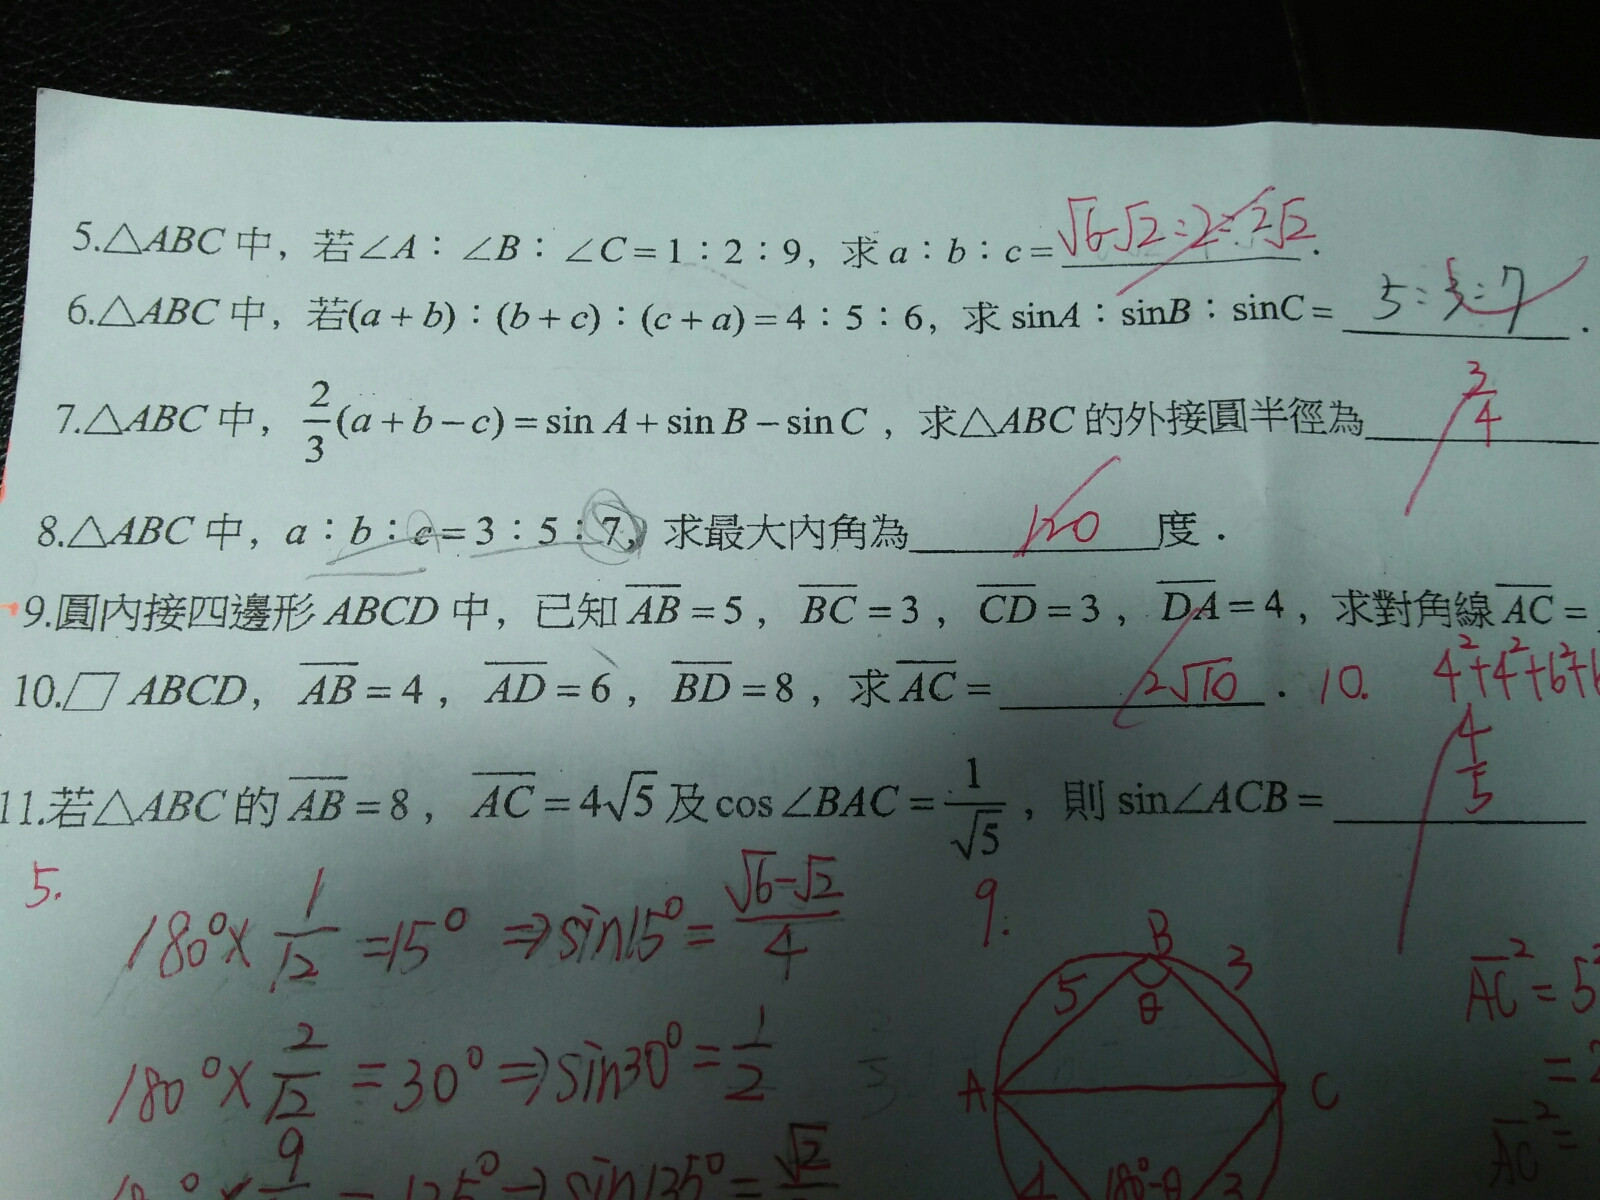 5.△ABC 中，若∠A：∠B：∠C=1：2：9，求 a：b：c= √6-√2：2：2√2.
6.△ABC 中，若(a+b)：(b+c)：(c+a)=4：5：6，求 sinA：sinB：sinC= 5：3：7.
7.△ABC 中，2/3(a+b-c)=sin A+sin B-sin C，求△ABC 的外接圓半徑為 3/4
8.△ABC 中，a：b：c=3：5：7，求最大內角為 120 度．
9.圓內接四邊形 ABCD 中，已知 AB=5，BC=3，CD=3，DA=4，求對角線 AC=
10.▱ ABCD，AB=4，AD=6，BD=8，求 AC= 2√10． 10. 4²+4²+6²+6
11.若△ABC 的 AB=8，AC=4√5 及 cos∠BAC=1/√5，則 sin∠ACB= 4/5
5.
180°× 1/12 =15° ⇒ sin15°= (√6-√2)/4
180°× 2/12 = 30° ⇒ sin30° = 1/2
180°× 9/12 = 135° ⇒ sin135° = √2
9.
B
5 θ 3
A C
4 180°-θ 3
AC² = 5²
= 2
AC² =